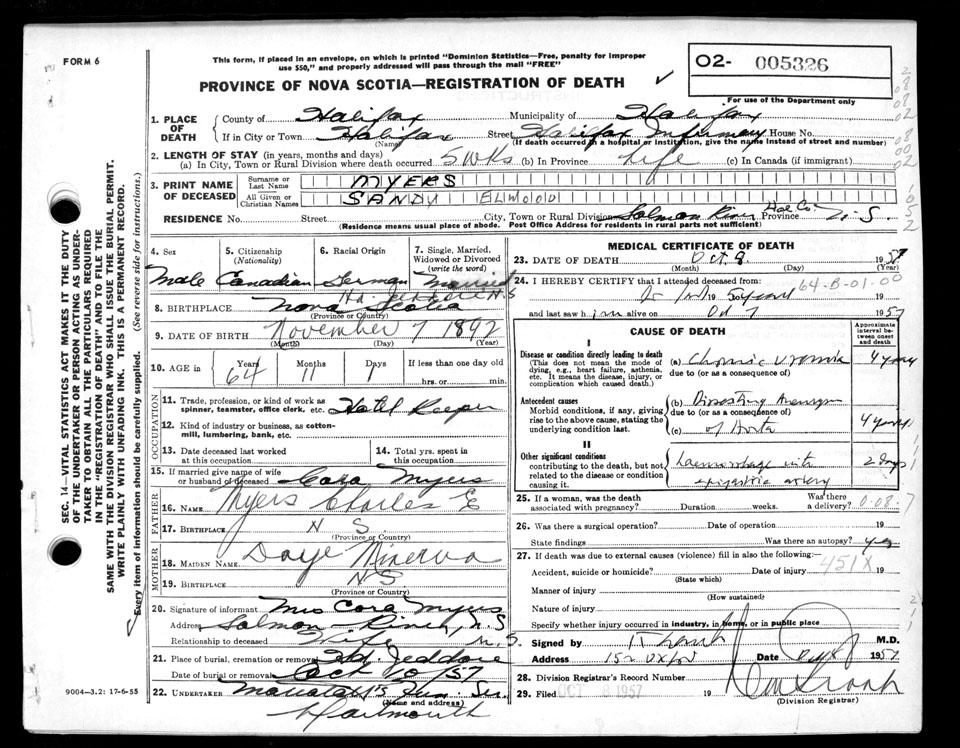 FORM 6
This form, if placed in an envelope, on which is printed "Dominion Statistics—Free, penalty for improper
use $50," and properly addressed will pass through the mail "FREE"
PROVINCE OF NOVA SCOTIA—REGISTRATION OF DEATH
O2- 005326
For use of the Department only
1. PLACE OF DEATH
County of Halifax Municipality of Halifax
If in City or Town Halifax Street Halifax Infirmary House No.
(Name) (If death occurred in a hospital or institution, give the name instead of street and number)
2. LENGTH OF STAY (in years, months and days)
(a) In City, Town or Rural Division where death occurred 5 wks (b) In Province Life (c) In Canada (if immigrant)
3. PRINT NAME OF DECEASED
Surname or Last Name MYERS
All Given or Christian Names SANDY ELWOOD
RESIDENCE No. Street City, Town or Rural Division Salmon River Hal Co. Province N.S.
(Residence means usual place of abode. Post Office Address for residents in rural parts not sufficient)
4. Sex Male
5. Citizenship (Nationality) Canadian
6. Racial Origin German
7. Single, Married, Widowed or Divorced (write the word) Married
8. BIRTHPLACE Hd. Jeddore N.S Nova Scotia
(Province or Country)
9. DATE OF BIRTH November 7 1892
(Month) (Day) (Year)
10. AGE in Years 64 Months 11 Days 1 If less than one day old
hrs. or min.
OCCUPATION
11. Trade, profession, or kind of work as spinner, teamster, office clerk, etc. Hotel Keeper
12. Kind of industry or business, as cotton-mill, lumbering, bank, etc.
13. Date deceased last worked at this occupation
14. Total yrs. spent in this occupation
15. If married give name of wife or husband of deceased Cora Myers
FATHER
16. NAME Myers Charles E
17. BIRTHPLACE N S.
(Province or Country)
MOTHER
18. MAIDEN NAME Daye Minerva
19. BIRTHPLACE NS
(Province or Country)
20. Signature of informant Mrs Cora Myers
Address Salmon River, N.S
Relationship to deceased Wife N.S.
21. Place of burial, cremation or removal Hd. Jeddore
Date of burial or removal Oct 10/57
22. UNDERTAKER Fun. Ser.
(Name and address)
Dartmouth
9004—3.2: 17-6-55
SEC. 14—VITAL STATISTICS ACT MAKES IT THE DUTY
OF THE UNDERTAKER OR PERSON ACTING AS UNDER-
TAKER TO OBTAIN ALL THE PARTICULARS REQUIRED
IN THE "REGISTRATION OF DEATH" AND TO FILE THE
SAME WITH THE DIVISION REGISTRAR WHO SHALL ISSUE THE BURIAL PERMIT.
WRITE PLAINLY WITH UNFADING INK. THIS IS A PERMANENT RECORD.
Every item of information should be carefully supplied. (See reverse side for instructions.)
MEDICAL CERTIFICATE OF DEATH
23. DATE OF DEATH Oct. 8 1957
(Month) (Day) (Year)
24. I HEREBY CERTIFY that I attended deceased from:
64-B-01-00
19
and last saw him alive on Oct 7 1957
CAUSE OF DEATH
Approximate interval between onset and death
I
Disease or condition directly leading to death
(This does not mean the mode of dying, e.g., heart failure, asthenia, etc. It means the disease, injury, or complication which caused death.)
(a) Chronic Uremia 4 years
due to (or as a consequence of)
Antecedent causes
Morbid conditions, if any, giving rise to the above cause, stating the underlying condition last.
(b) Dissecting Aneurysm
due to (or as a consequence of)
(c) of Aorta 4 years
II
Other significant conditions
contributing to the death, but not related to the disease or condition causing it.
haemorrhage into 2 days
epigastric artery
25. If a woman, was the death associated with pregnancy? Duration weeks. Was there a delivery?
26. Was there a surgical operation? Date of operation 19
State findings Was there an autopsy? yes
27. If death was due to external causes (violence) fill in also the following:
Accident, suicide or homicide? Date of injury 451X 19
(State which)
Manner of injury
(How sustained)
Nature of injury
Specify whether injury occurred in industry, in home, or in public place
Signed by M.D.
Address 152 Oxford Date Oct 8 1957
28. Division Registrar's Record Number
29. Filed OCT 8 1957 19
(Division Registrar)